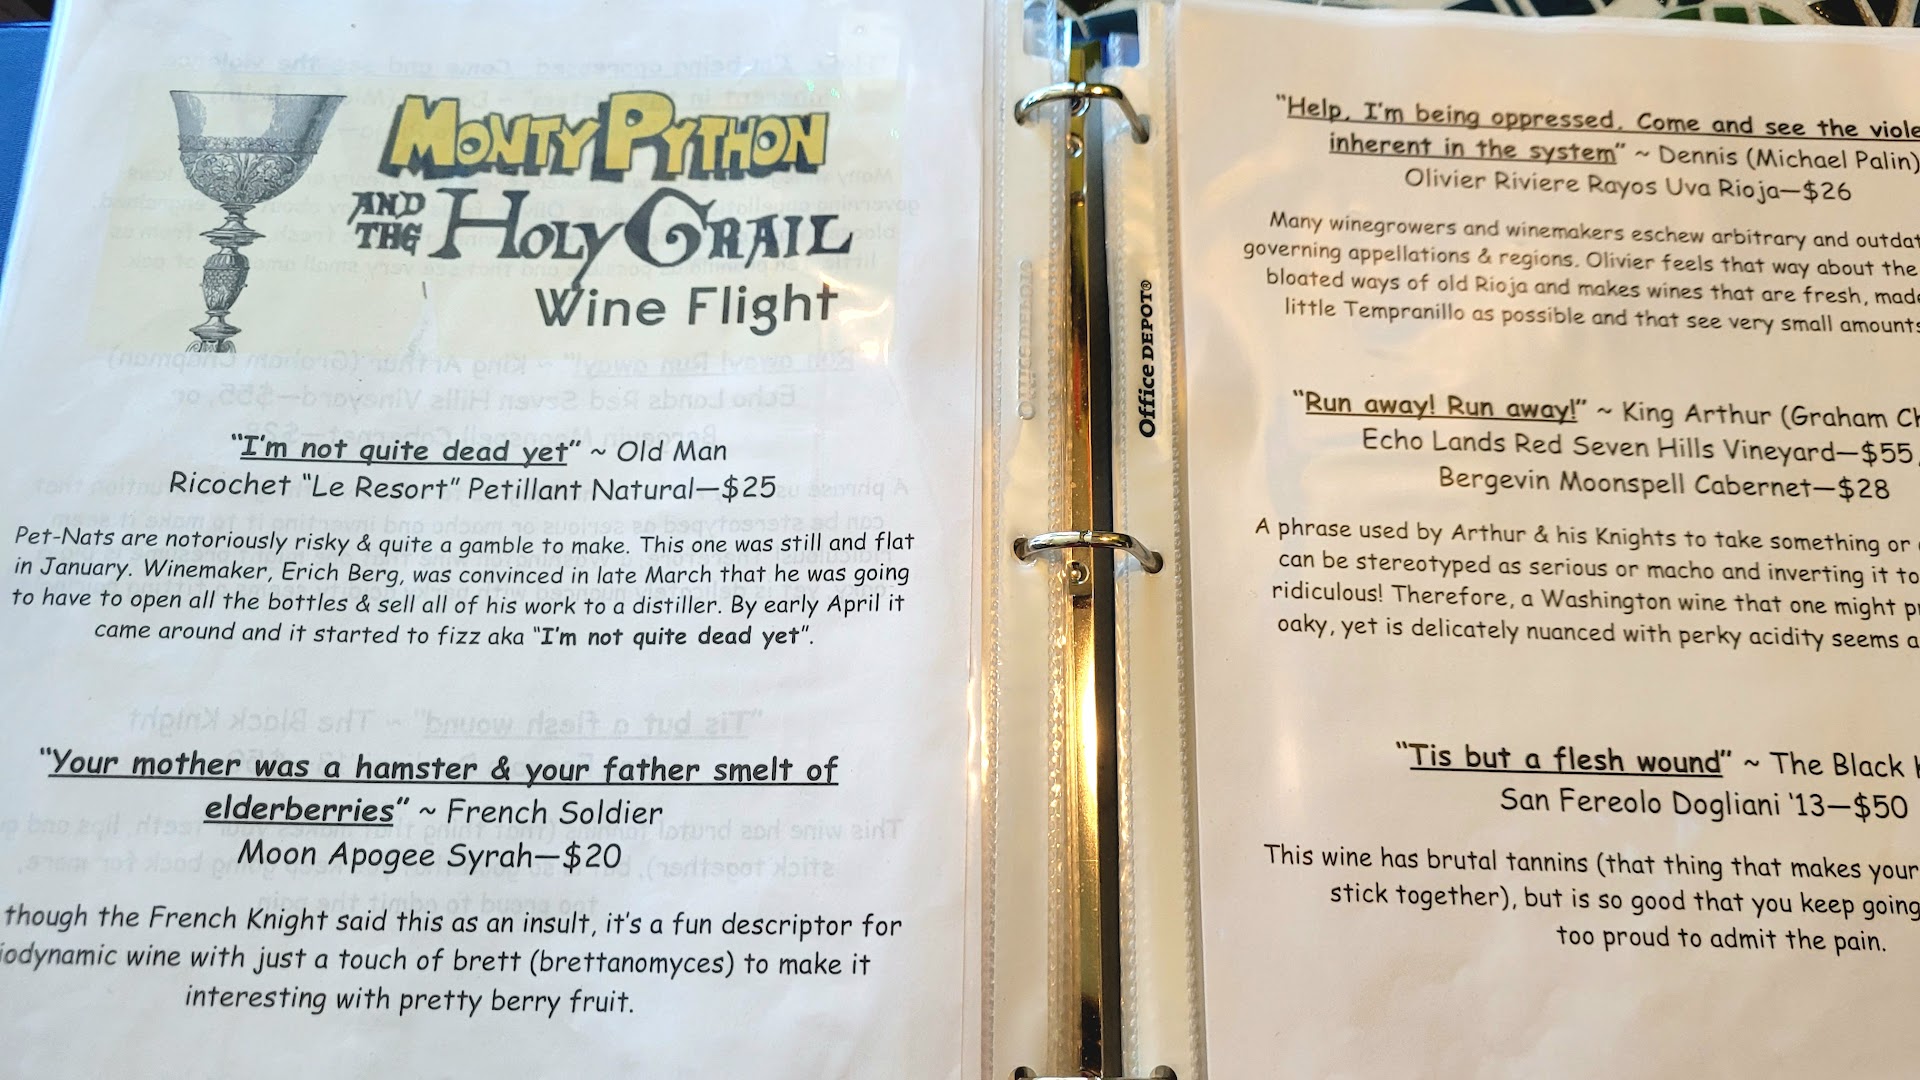 MONTY PYTHON
AND THE HOLY GRAIL
Wine Flight
"I'm not quite dead yet" ~ Old Man
Ricochet "Le Resort" Petillant Natural—$25
Pet-Nats are notoriously risky & quite a gamble to make. This one was still and flat
in January. Winemaker, Erich Berg, was convinced in late March that he was going
to have to open all the bottles & sell all of his work to a distiller. By early April it
came around and it started to fizz aka "I'm not quite dead yet".
"Your mother was a hamster & your father smelt of
elderberries" ~ French Soldier
Moon Apogee Syrah—$20
though the French Knight said this as an insult, it's a fun descriptor for
wine with just a touch of brett (brettanomyces) to make it
interesting with pretty berry fruit.
Office DEPOT®
"Help, I'm being oppressed. Come and see the
inherent in the system" ~ Dennis (Michael Palin)
Olivier Riviere Rayos Uva Rioja—$26
Many winegrowers and winemakers eschew arbitrary and
governing appellations & regions. Olivier feels that way about the
bloated ways of old Rioja and makes wines that are fresh,
little Tempranillo as possible and that see very small
"Run away! Run away!" ~ King Arthur (Graham
Echo Lands Red Seven Hills Vineyard—$55,
Bergevin Moonspell Cabernet—$28
A phrase used by Arthur & his Knights to take something or
can be stereotyped as serious or macho and inverting it to
ridiculous! Therefore, a Washington wine that one might
oaky, yet is delicately nuanced with perky acidity seems
"Tis but a flesh wound" ~ The Black
San Fereolo Dogliani '13—$50
This wine has brutal tannins (that thing that makes your
stick together), but is so good that you keep going
too proud to admit the pain.